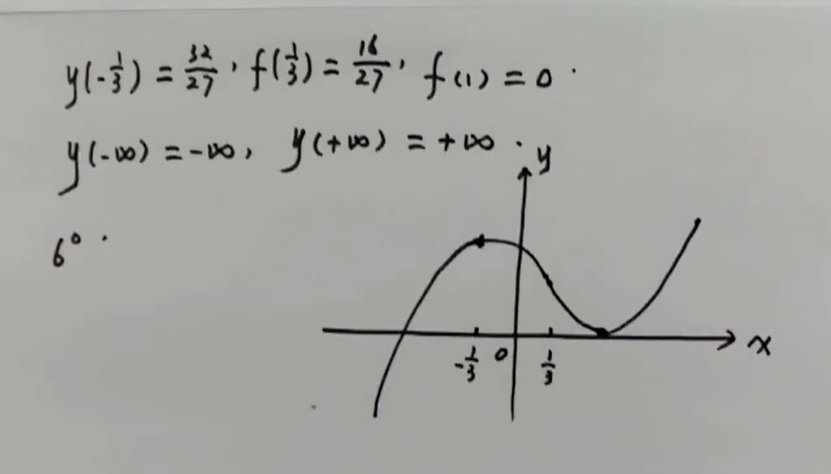 y(-1/3) = 32/27, f(1/3) = 16/27, f(1) = 0.
y(-∞) = -∞, y(+∞) = +∞.
y
6°.
-1/3 0 1/3 x